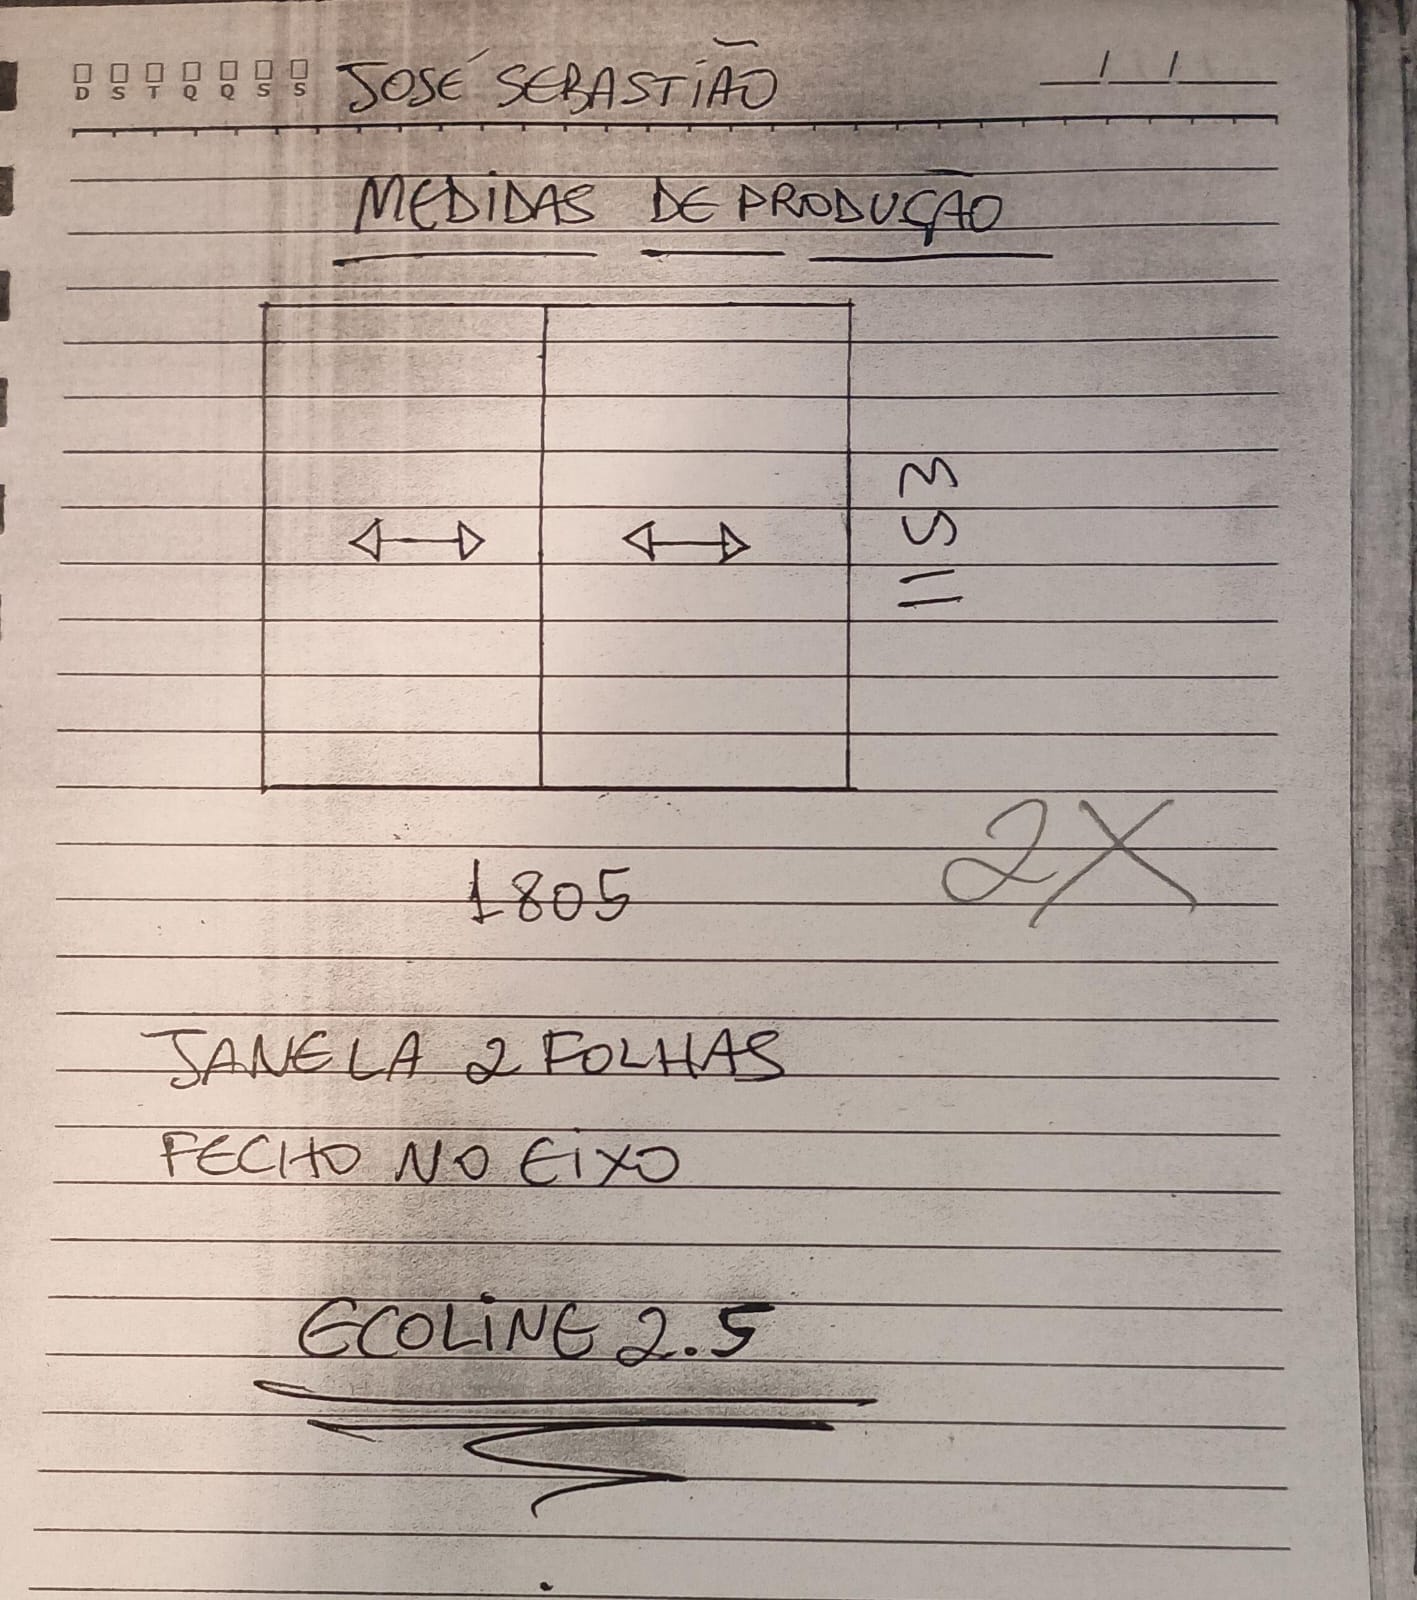 D S T Q Q S S JOSÉ SEBASTIÃO / /
MEDIDAS DE PRODUÇÃO
1153
2X
1805
JANELA 2 FOLHAS
FECHO NO EIXO
ECOLINE 2.5